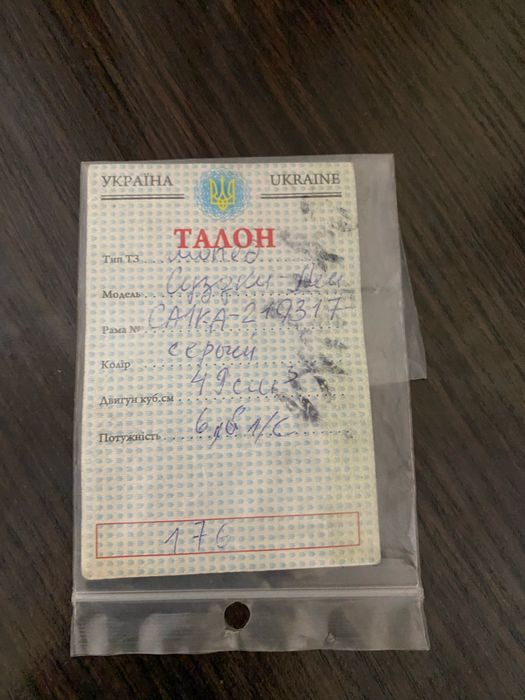 УКРАЇНА UKRAINE
ТАЛОН
Тип ТЗ мопед
Модель Сузуки-Лец
Рама № CA1KA-219317
Колір серый
Двигун куб.см 49 см³
Потужність 6,8 л/с
176